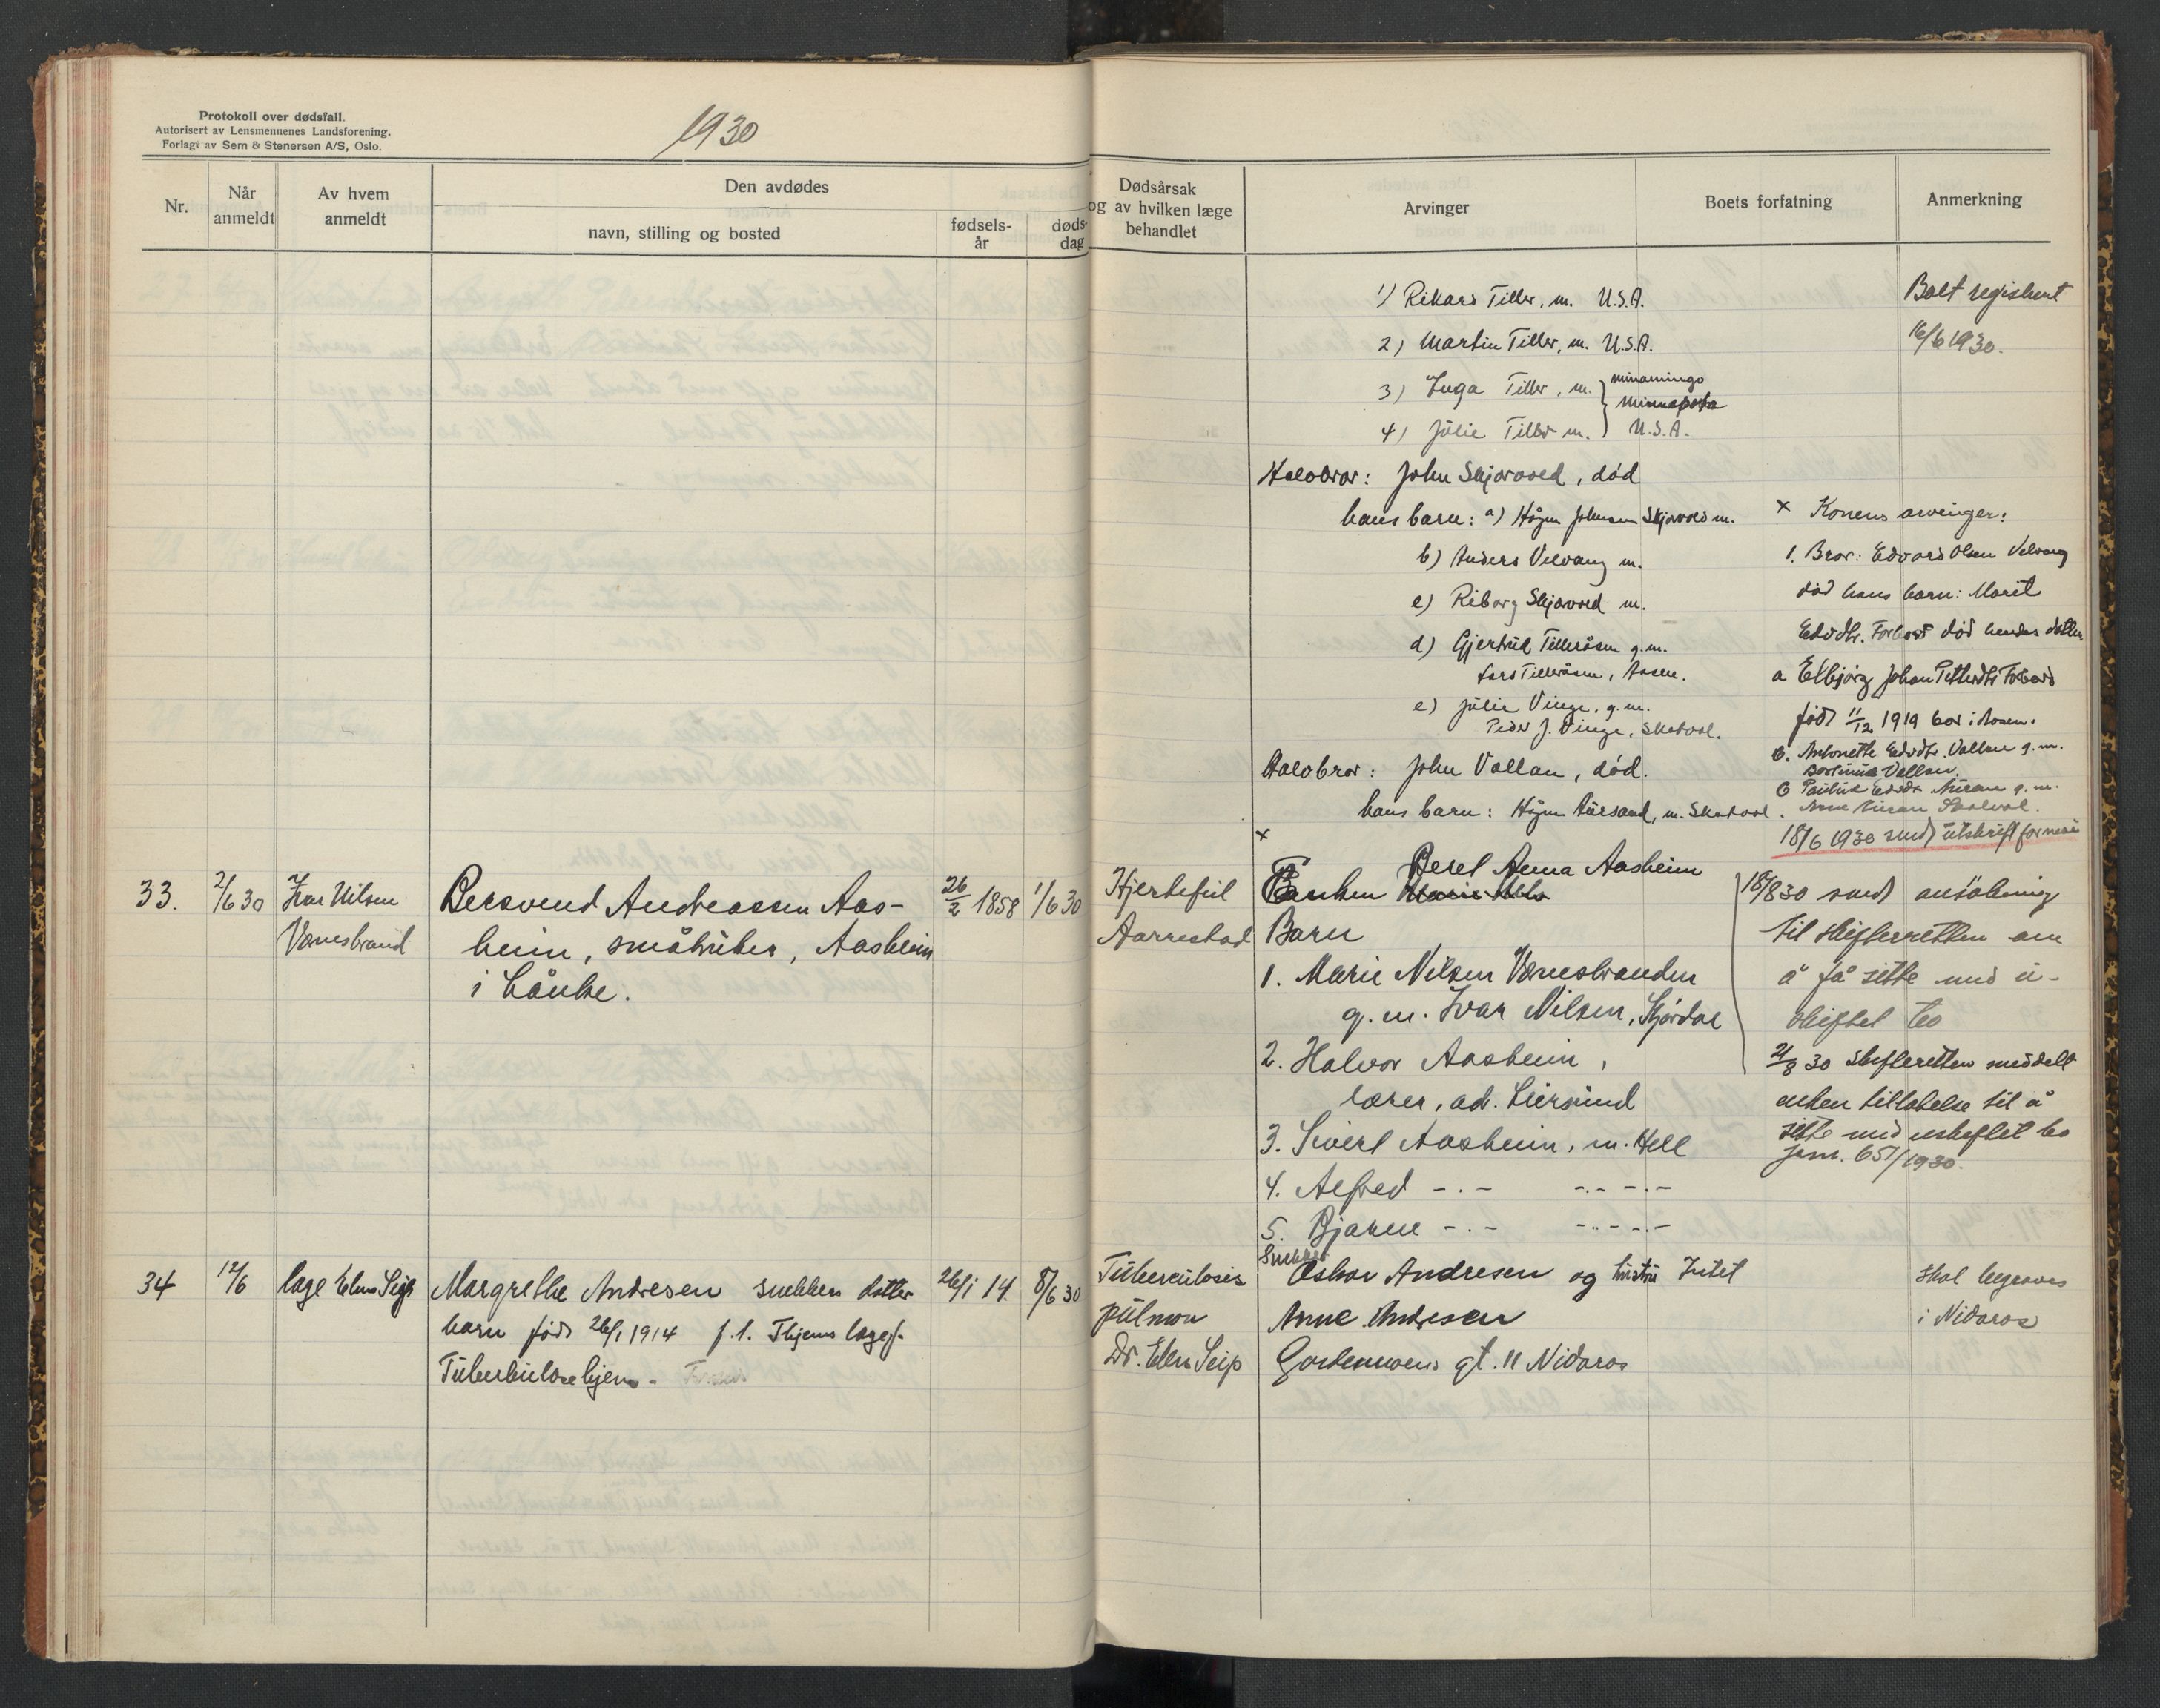 Protokoll over dødsfall.
Autorisert av Lensmennenes Landsforening.
Forlagt av Sem & Stenersen A/S, Oslo.
1930
Nr.
Når
anmeldt
Av hvem
anmeldt
Den avdødes
navn, stilling og bosted
fødsels-
år
døds-
dag
Dødsårsak
og av hvilken læge
behandlet
Arvinger
Boets forfatning
Anmerkning
1) Rikard Tiller, m. U.S.A.
2) Martin Tiller, m. U.S.A.
3) Inga Tiller, m.
4) Julie Tiller m.
Minnesota
U.S.A.
Boet registrert
16/6 1930.
Halvbror: John Skjervold, død
hans barn: a) Hågen Johnsen Skjervold m.
b) Anders Velvang m.
c) Riborg Skjervold m.
d) Gjertrud Tilleråsen g.m.
Lars Tilleråsen, Aasen.
e) Julie Vinge, g.m.
Peder J. Vinge, Skatval.
Halvbror: John Vollan, død.
hans barn: Hågen Aursand, m. Skatval.
x Konens arvinger:
1. Bror: Edvard Olsen Velvang
død hans barn: Marit
Edvdtr. Forbord død hendes datter
a Elbjørg Johan Petterdtr Forbord
født 11/12 1919 bor i Aasen.
b. Antonette Edvdtr. Vollan g.m.
Vollan.
18/6 1930 sendt utskrift
x
33.
2/6 30
Ivar Nilsen
Værnesbrand
Bersvend Andreassen Aas-
heim, småbruker, Aasheim
i Lånke.
26/2 1858
1/6 30
Hjertefeil
Aarrestad
Enken Beret Anna Aasheim
Barn
1. Marie Nilsen Værnesbranden
g.m. Ivar Nilsen, Stjørdal
2. Halvor Aasheim,
lærer, ad. Leirsund
3. Sivert Aasheim, m. Hell
4. Alfred -.- -.- -.-
5. Bjarne -.- -.- -.-
18/8 30 sendt ansøkning
til skifteretten om
å få sitte med u-
skiftet bo
21/8 30 skifteretten meddelt
enken tillatelse til å
sitte med uskiftet bo
jnr. 651/1930.
34
12/6
læge Elen Seip
Margrethe Andresen snekker datter
barn født 26/1 1914 f.t.
Tuberkulosehjem.
26/1 14.
8/6 30
Tuberculosis
pulmon
Dr. Elen Seip
Snekker
Oskar Andresen og hustru
Anne Andresen
gt. 11 Nidaros
Intet
skal begraves
i Nidaros